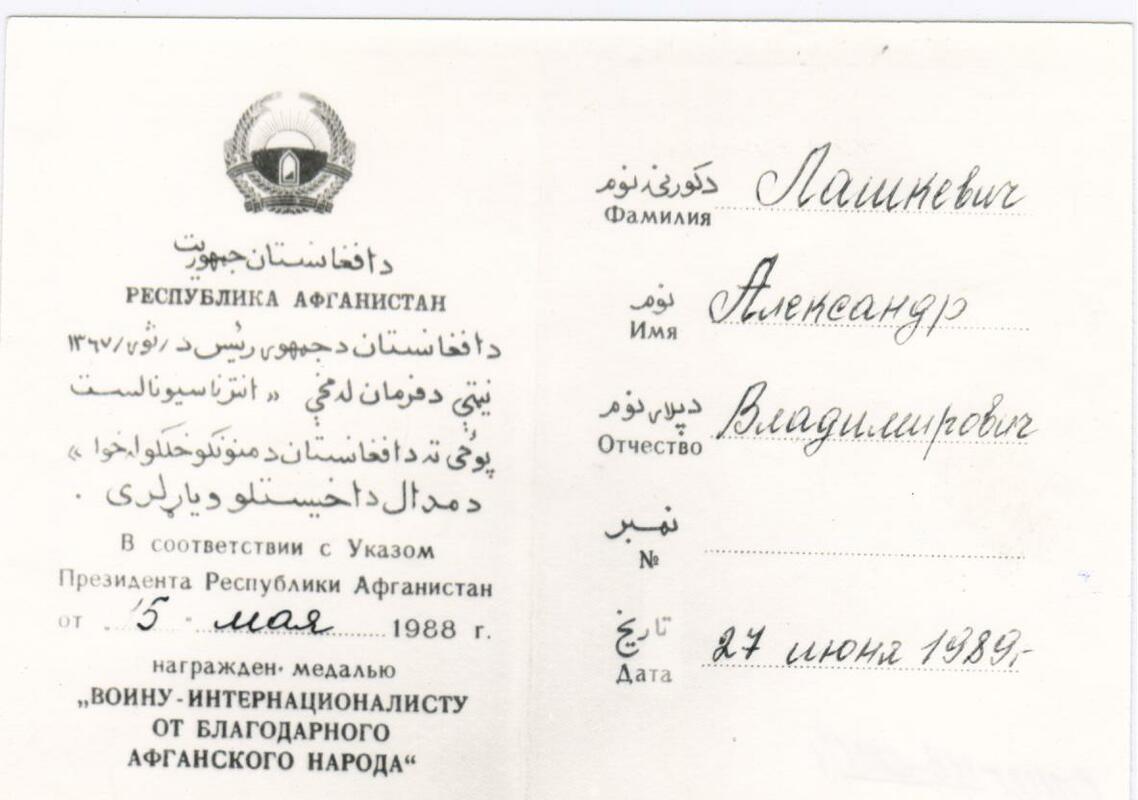 د افغانستان جمهوریت
РЕСПУБЛИКА АФГАНИСТАН
د افغانستان د جمهوری رئیس د /ثور/ ۱۳۶۷
نیټې د فرمان له مخې « انترناسیونالست
پوځی ته د افغانستان د منونکو خلکو له خوا »
د مدال د اخیستلو ویاړ لری .
В соответствии с Указом
Президента Республики Афганистан
от "15" мая 1988 г.
награжден медалью
„ВОИНУ-ИНТЕРНАЦИОНАЛИСТУ
ОТ БЛАГОДАРНОГО
АФГАНСКОГО НАРОДА“
د کورنۍ نوم
Фамилия Лашкевич
نوم
Имя Александр
د پلار نوم
Отчество Владимирович
نمبر
№
تاریخ
Дата 27 июня 1989г.